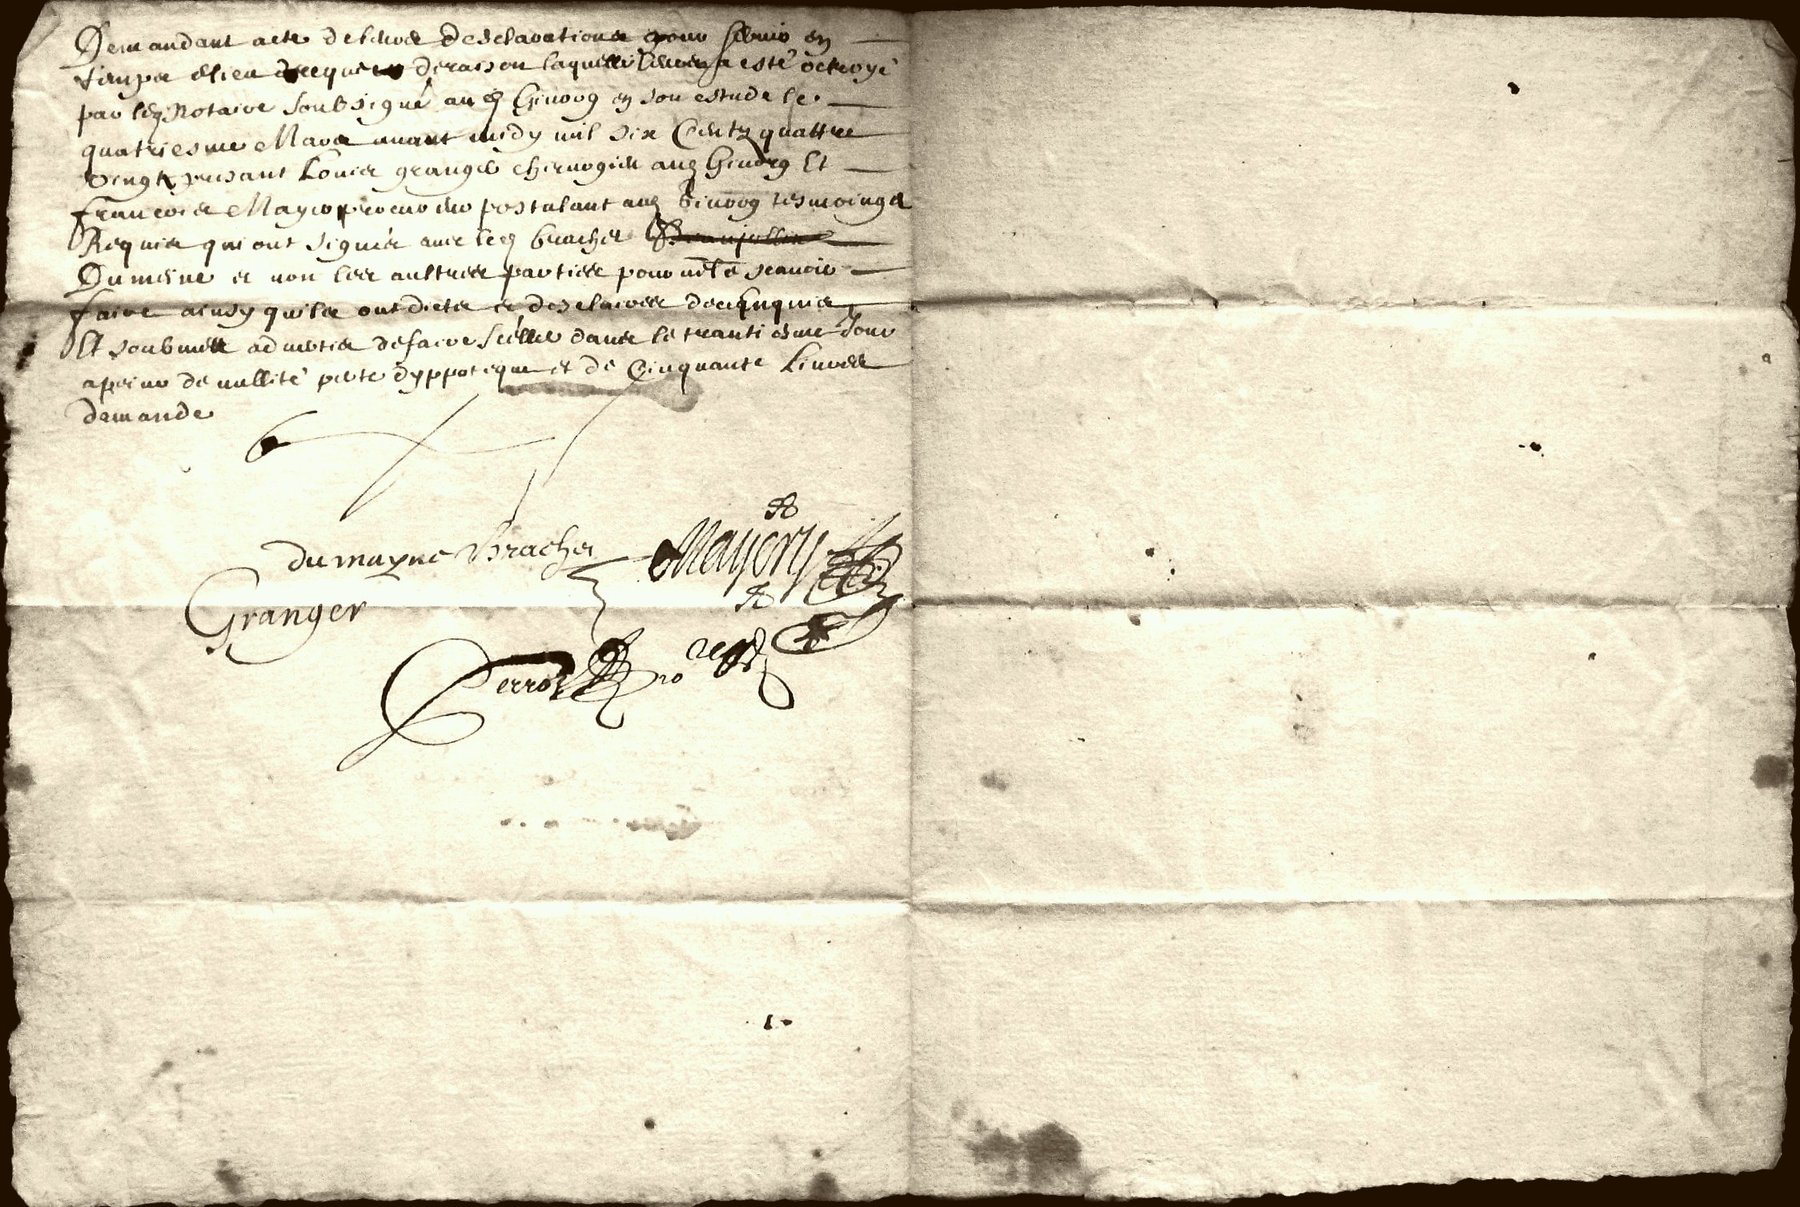 Demandant acte de leurs desclarations pour servir en
temps et lieu que de raison laquelle a esté octroyé
par led Notaire soubsigné aud Givorg en son estude le
quatriesme Mars avant midy mil six Centz quattre
vingtz presant Louis granger chirurgien aud Givorg Et
francois Mayery procureur postulant aud Givorg tesmoings
Requis qui ont signés avec led brachet
Dumeine et non les aultres parties pour ne scavoir
faire ainsy quils ont dictz et desclaires de ce enquis
Et soubmis advertis de faire seeller dans le trantiesme Jour
a peine de nullité perte dyppoteque et de Cinquante Livres
damande
dumayne Brachet Mayery
Granger
Perrot no re